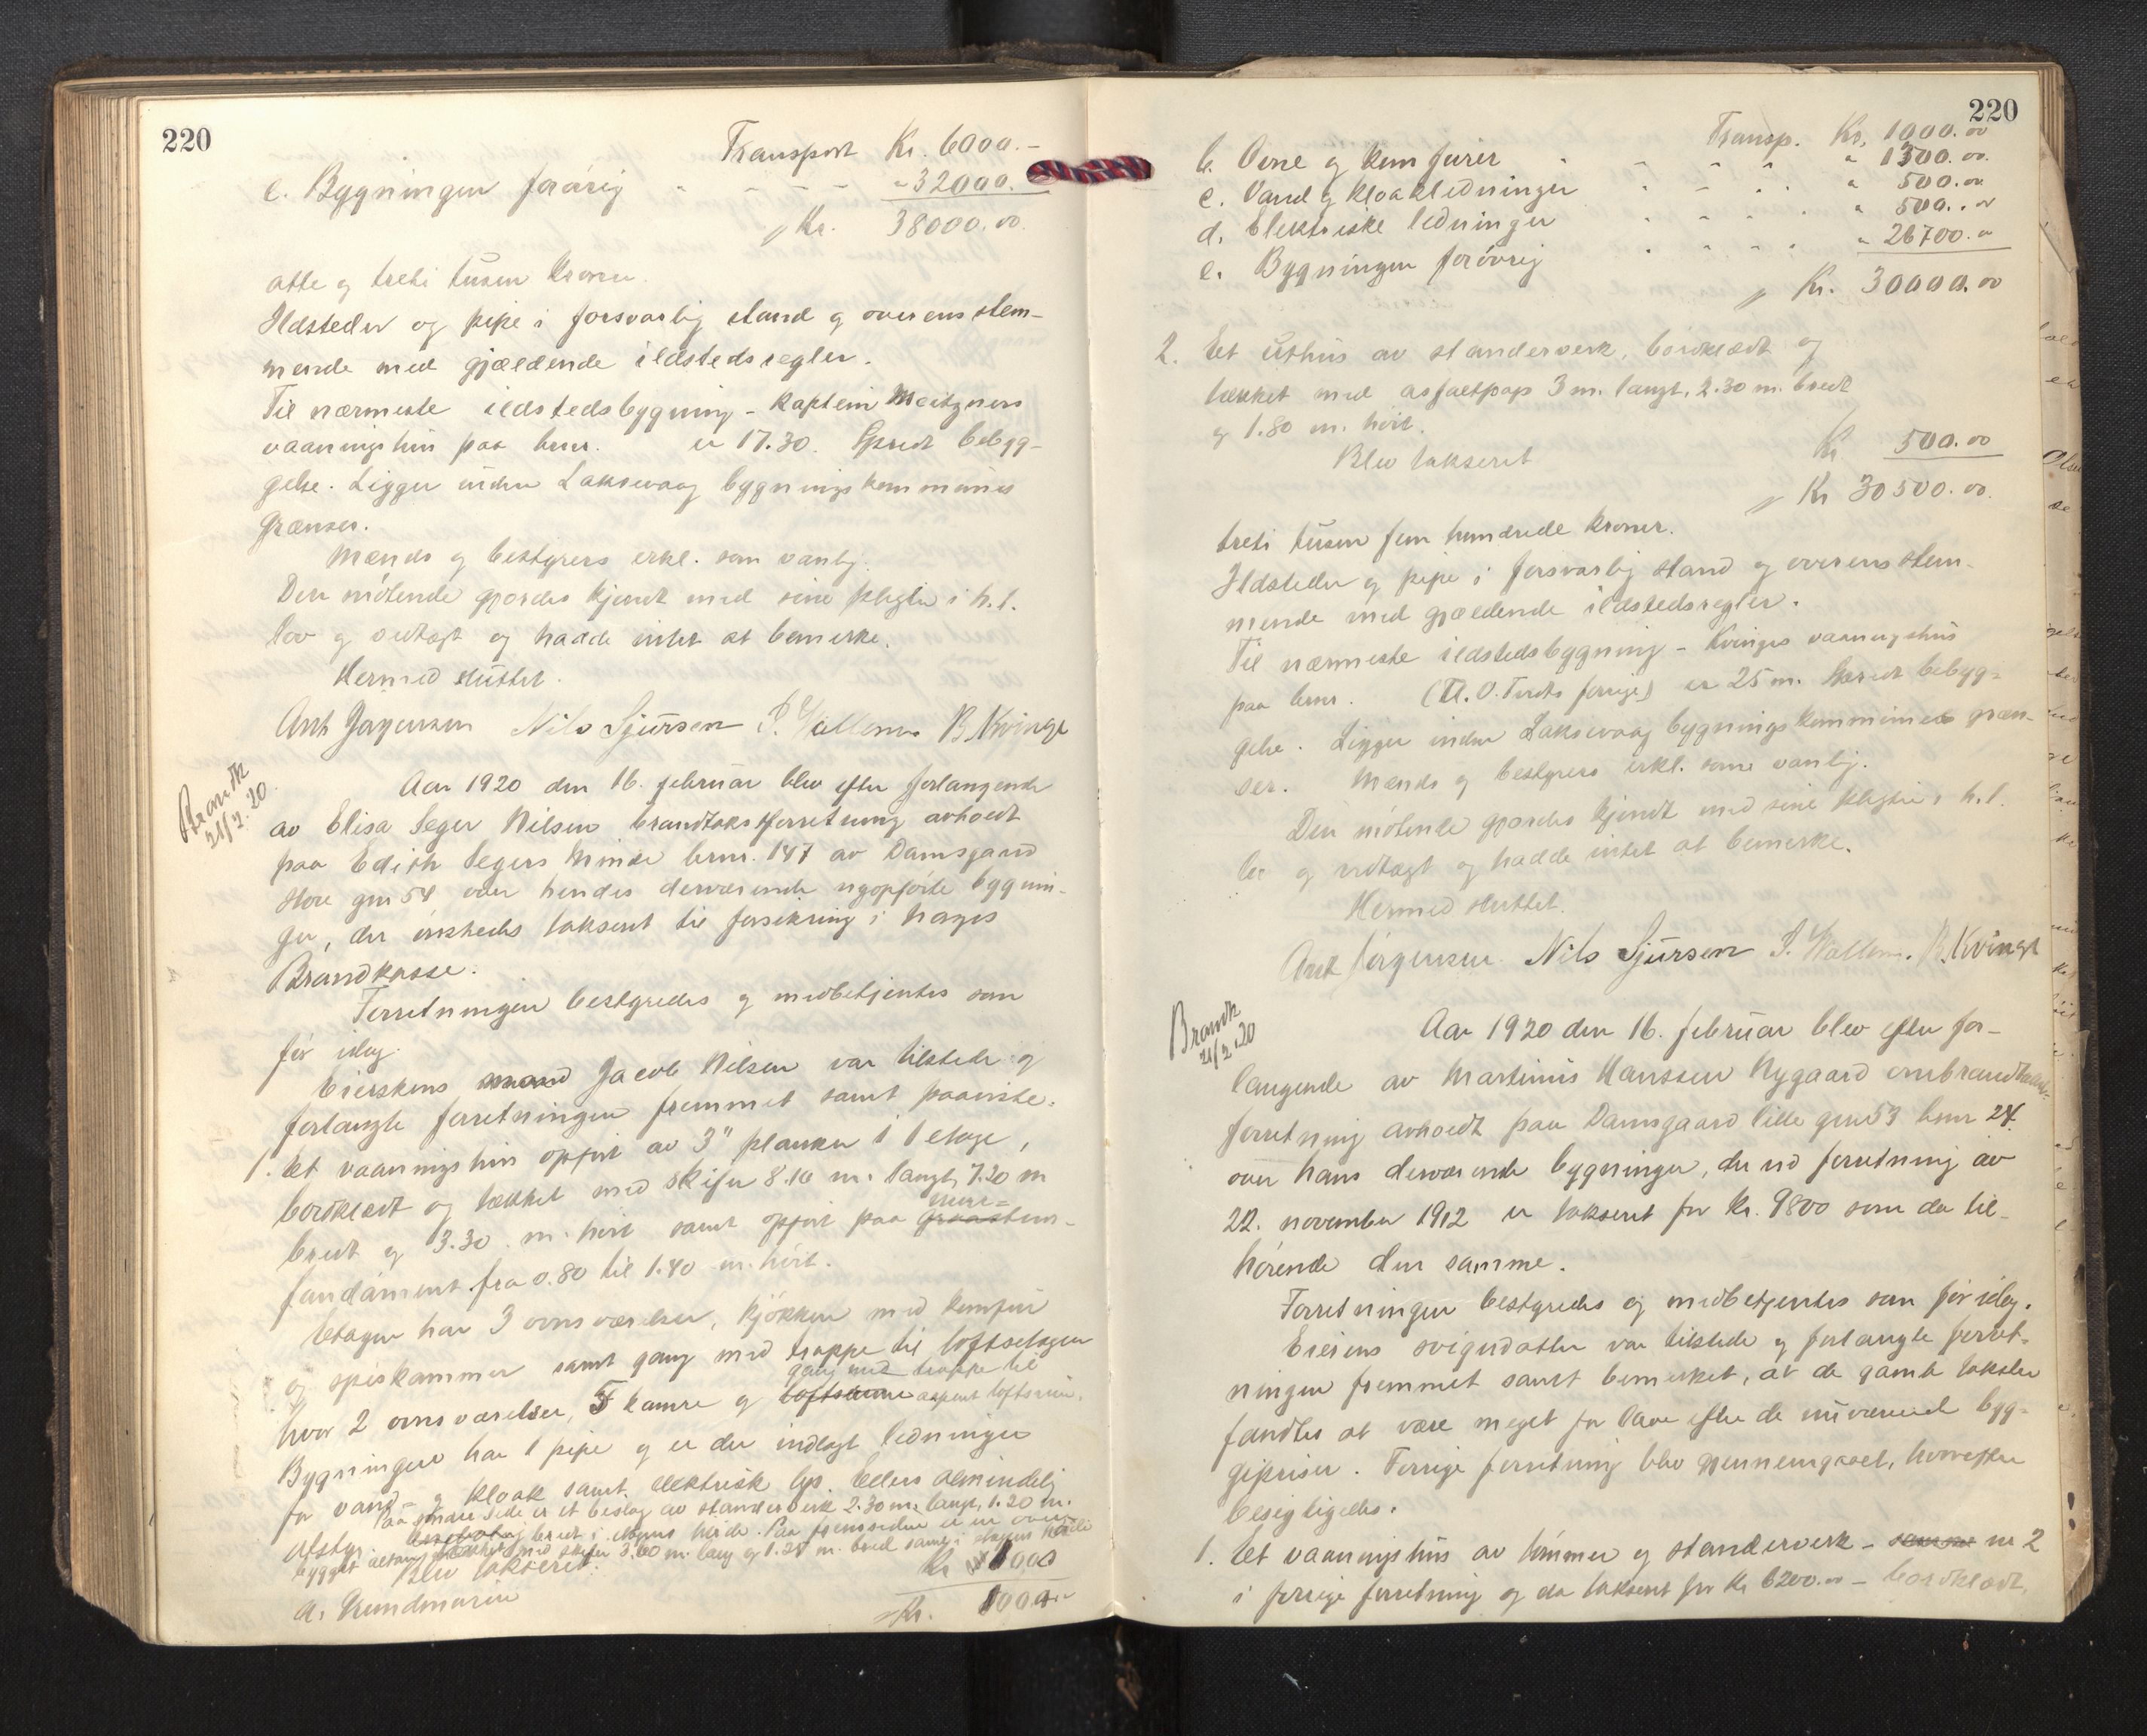 220
Transport Kr. 6000.-
e. Bygningen forøvrig " - - - " 32000.
Kr. 38000.00.
otte og treti tusen kroner.
Ildsteder og pipe i forsvarlig stand og overensstem-
mende med gjældende ildstedsregler.
Til nærmeste ildstedsbygning - kaptein
vaaningshus paa brnr. er 17.30. Spredt bebyg-
gelse. Ligger inden Laksevaag bygningskommunes
grænser.
Mænds og bestyrers erkl. som vanlig.
Den møtende gjordes kjendt med sine pligter i h.t.
lov og vedtægt og hadde intet at bemerke.
Hermed sluttet.
Ant Jørgensen Nils Sjursen P. Wallem. B. Kvinge
Brandtk
21/2.20
Aar 1920 den 16. februar blev efter forlangende
av Elisa Seger Nilsen brandtakstforretning avholdt
paa Edith Segers Minde brnr. 147 av Damsgaard
store gnr 54 over hendes derværende nyopførte bygnin-
ger, der ønskedes taksert til forsikring i Norges
Brandkasse.
Forretningen bestyredes og medbetjentes som
før idag.
Eierskens mand Jacob Nilsen var tilstede og
forlangte forretningen fremmet samt paaviste.
1. Et vaaningshus opført av 3" planker i 1 etage,
bordklædt og tækket med skifer 8.10 m. langt, 7.20 m
bredt og 3.30 m. høit samt opført paa graastens-
mur-
fundament fra 0.80 til 1.40 m. høit.
Etagen har 3 ovnsværelser, kjøkken med komfur
og spiskammer samt gang med trappe til loftsetagen
hvor 2 ovnsværelser, 5 kamre og loftsrum aapent loftsrum.
gang med trappe til
Bygningen har 1 pipe og er der indlagt ledninger
for vand- og kloak samt elektrisk lys. Ellers almindelig
Paa søndre side er et beslag av standerverk 2.30 m. langt, 1.20 m.
utstyr. bredt i etagens høide. Paa fremsiden er en over-
bygget altan tækket med skifer 3.60 m. lang og 1.25 m. bred samt i etagens høide
Blev taksert:
a. Grundmuren Kr 1000
Kr. 1000.00
220
Transp. Kr. 1000.00
b. Ovne og komfurer " 1300.00.
c. Vand og kloakledninger " 500.00
d. Elektriske ledninger " 500.00
e. Bygningen forøvrig " 26700.00
Kr. 30000.00
2. Et uthus av standerverk, bordklædt og
tækket med asfaltpap 3 m. langt, 2.30 m. bredt
og 1.80 m. høit.
Blev taksert Kr 500.00
Kr 30500.00.
treti tusen fem hundrede kroner.
Ildsteder og pipe i forsvarlig stand og overensstem-
mende med gjældende ildstedsregler.
Til nærmeste ildstedsbygning - Kvinges vaaningshus
paa brnr. er 25 m. Spredt bebyg-
gelse. Ligger inden Laksevaag bygningskommunes græn-
ser. Mænds og bestyrers erkl. som vanlig.
Den møtende gjordes kjendt med sine pligter i h.t.
lov og vedtægt og hadde intet at bemerke.
Hermed sluttet.
Ant Jørgensen. Nils Sjursen P. Wallem. B. Kvinge
Brandtk
21/2.20
Aar 1920 den 16. februar blev efter for-
langende av Martinus Hanssen Nygaard ombrandtakst-
forretning avholdt paa Damsgaard lille gnr 53 brnr 24.
over hans derværende bygninger, der ved forretning av
22. november 1912 er taksert for kr. 9800 som da til-
hørende den samme.
Forretningen bestyredes og medbetjentes som før idag.
Eierens svigerdatter var tilstede og forlangte forret-
ningen fremmet samt bemerket, at de gamle takster
fandtes at være meget for lave efter de nuværende byg-
gepriser. Forrige forretning blev gjennemgaaet, hvorefter
besigtigedes.
1. Et vaaningshus av tømmer og standerverk - samme nr 2
i forrige forretning og da taksert for kr 6200.00 - bordklædt,